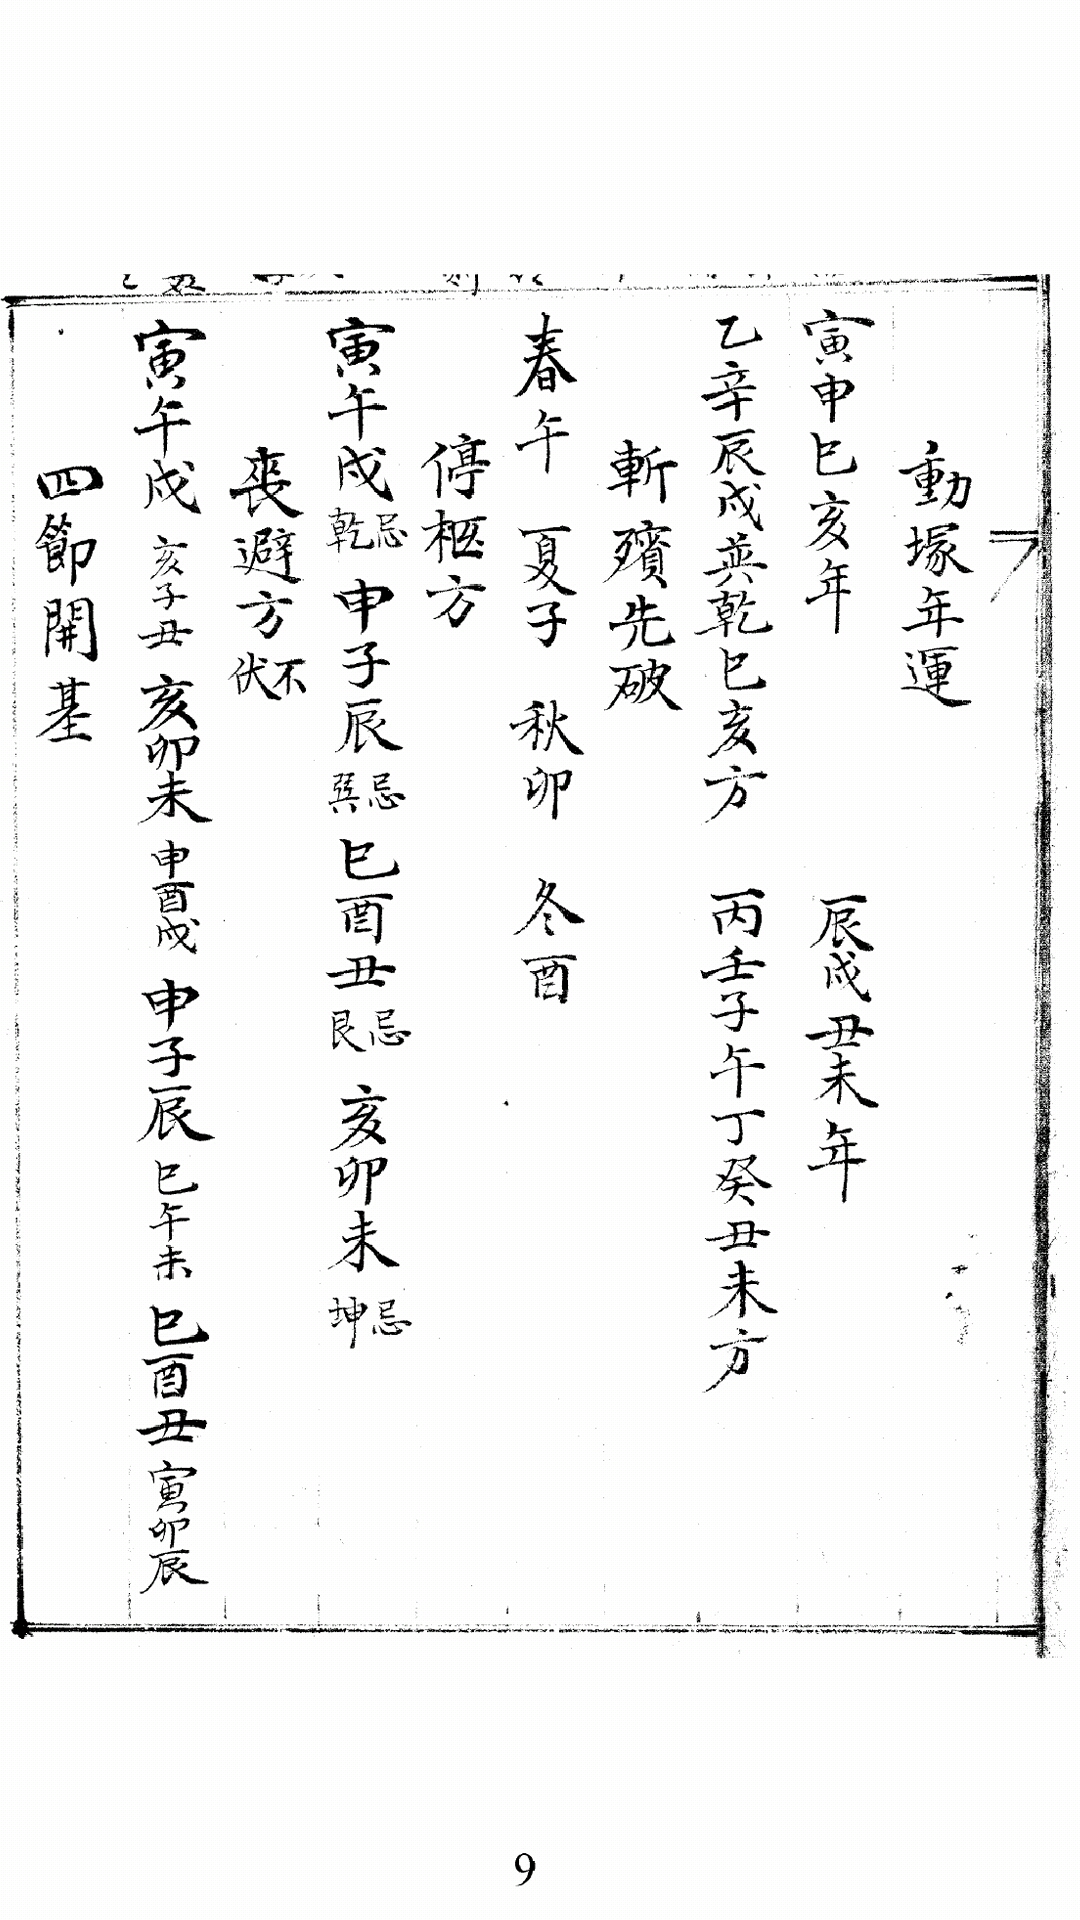 動塚年運
寅申巳亥年 辰戌丑未年
乙辛辰戌英乾巳亥方 丙壬子午丁癸丑未方
斬殯先破
春午 夏子 秋卯 冬酉
停柩方
寅午戌忌乾 申子辰忌巽 巳酉丑忌艮 亥卯未忌坤
喪避方不伏
寅午戌亥子丑 亥卯未申酉戌 申子辰巳午未 巳酉丑寅卯辰
四節開基
9